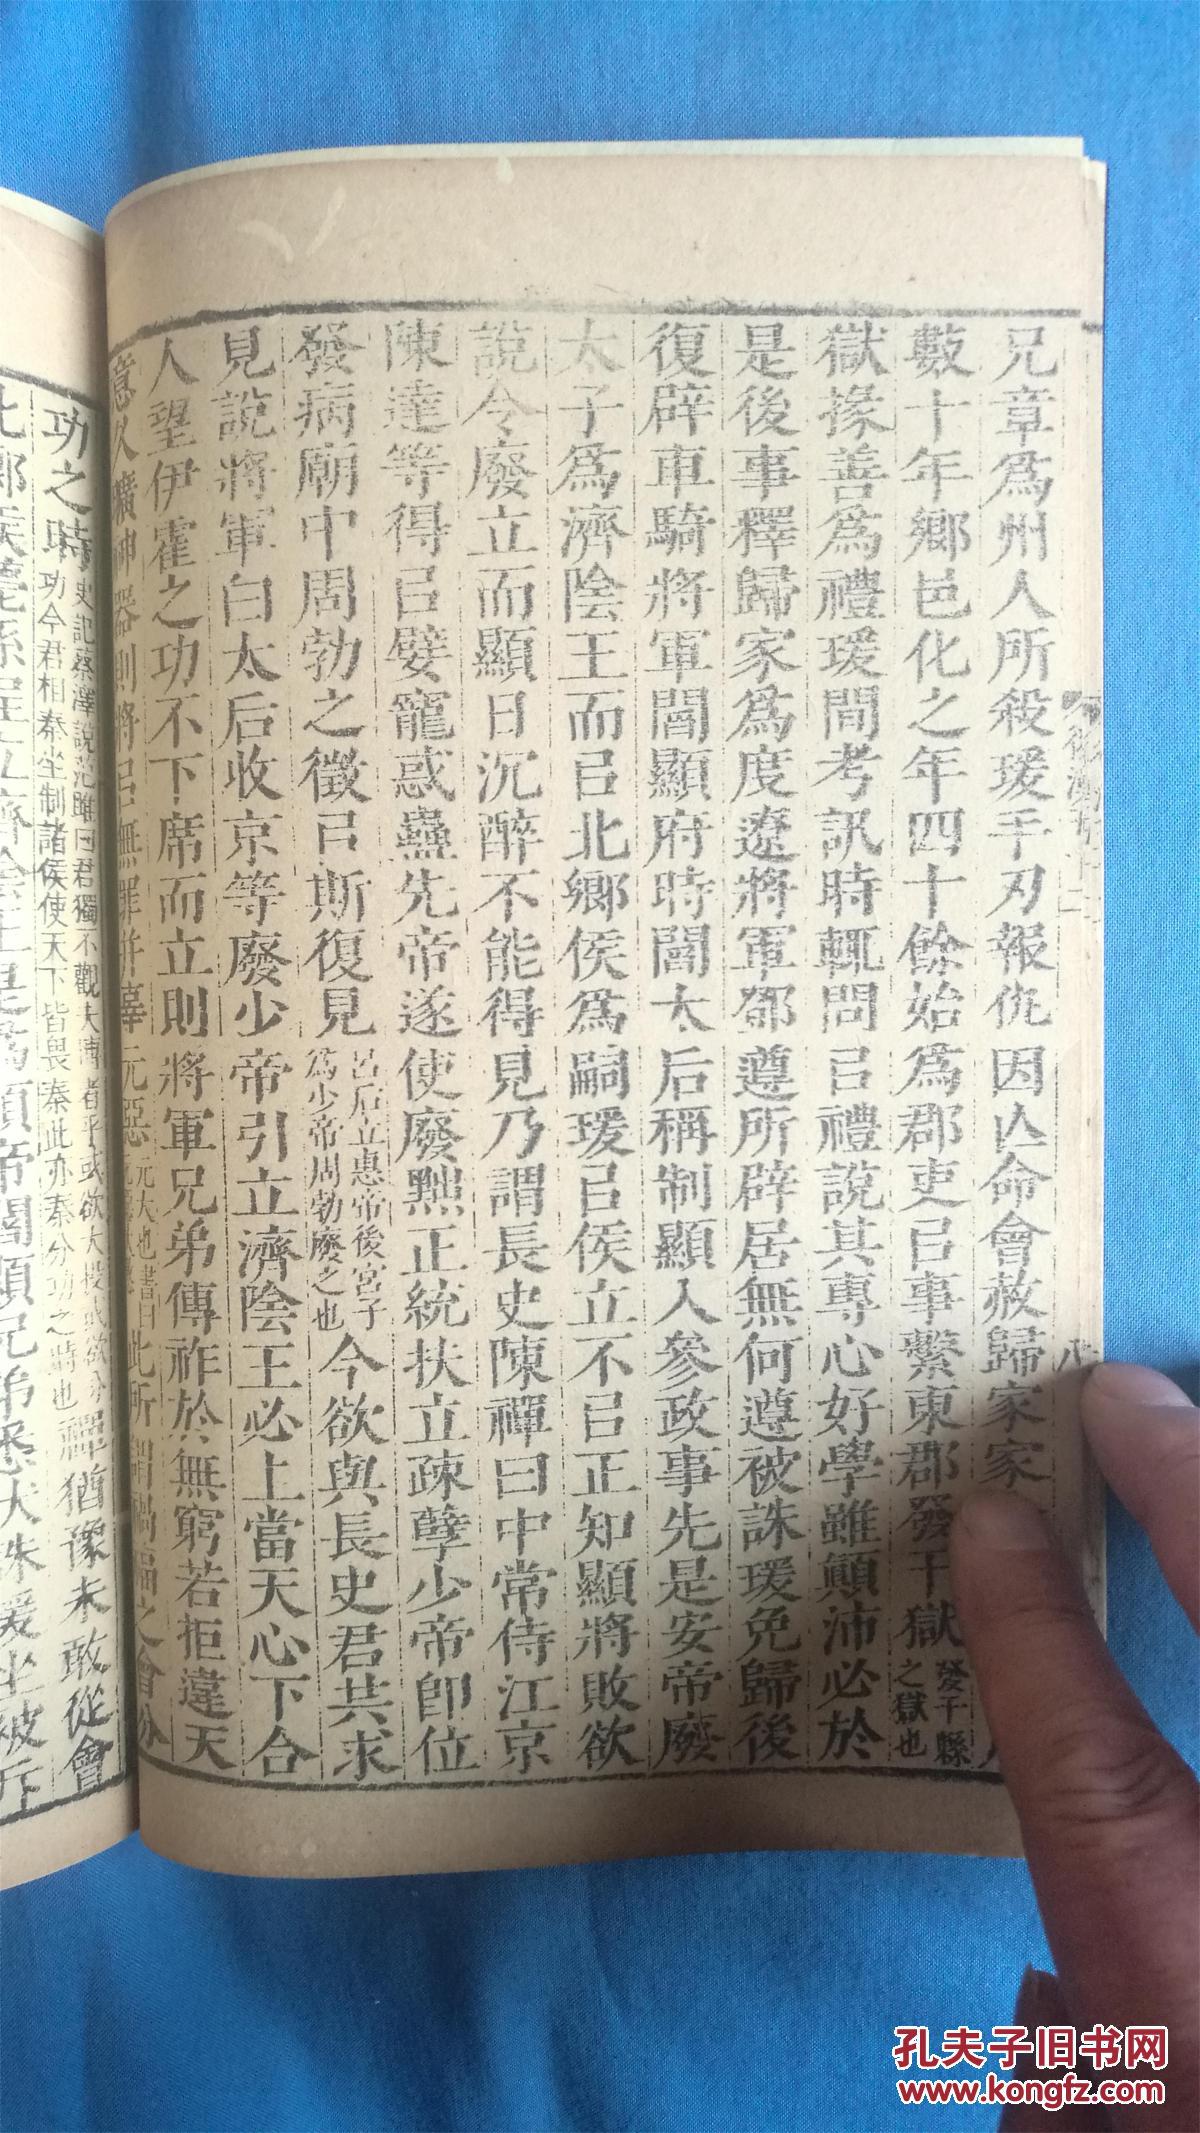 兄章為州人所殺瑗手刃報仇因亾命會赦歸家家
數十年鄉邑化之年四十餘始為郡吏㠯事繫東郡發干獄發干縣之獄也
獄掾善為禮瑗間考訊時輒問㠯禮說其專心好學雖顛沛必於
是後事釋歸家為度遼將軍鄧遵所辟居無何遵被誅瑗免歸後
復辟車騎將軍閻顯府時閻太后稱制顯入參政事先是安帝廢
太子為濟陰王而㠯北鄉侯為嗣瑗㠯侯立不㠯正知顯將敗欲
說令廢立而顯日沉醉不能得見乃謂長史陳禪曰中常侍江京
陳達等得㠯嬖寵惑蠱先帝遂使廢黜正統扶立疎孽少帝即位
發病廟中周勃之徵㠯斯復見呂后立惠帝後宮子為少帝周勃廢之也今欲與長史君共求
見說將軍白太后收京等廢少帝引立濟陰王必上當天心下合
人望伊霍之功不下席而立則將軍兄弟傳祚於無窮若拒違天
意久曠神器則將㠯無罪并辜元惡元大也書曰此所謂禍福之會分
功之時史記蔡澤說范雎曰君獨不觀夫博者乎或欲大投或欲分功今君相秦坐制諸侯使天下皆畏秦此亦秦分功之時也禪猶豫未敢從會
孔夫子旧书网
www.kongfz.com